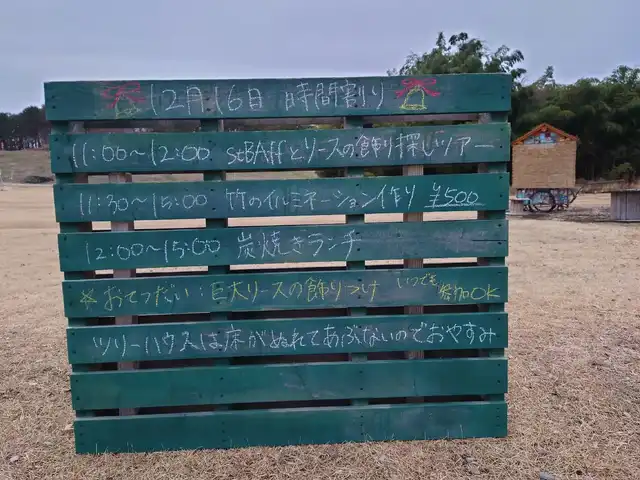 12月16日 時間割り
11:00～12:00 stBAffとリースの飾り探しツアー
11:30～15:00 竹のイルミネーション作り ¥500
12:00～15:00 炭焼きランチ
☆おてつだい:巨大リースの飾りつけ いつでも参加OK
ツリーハウスは床がぬれてあぶないのでおやすみ